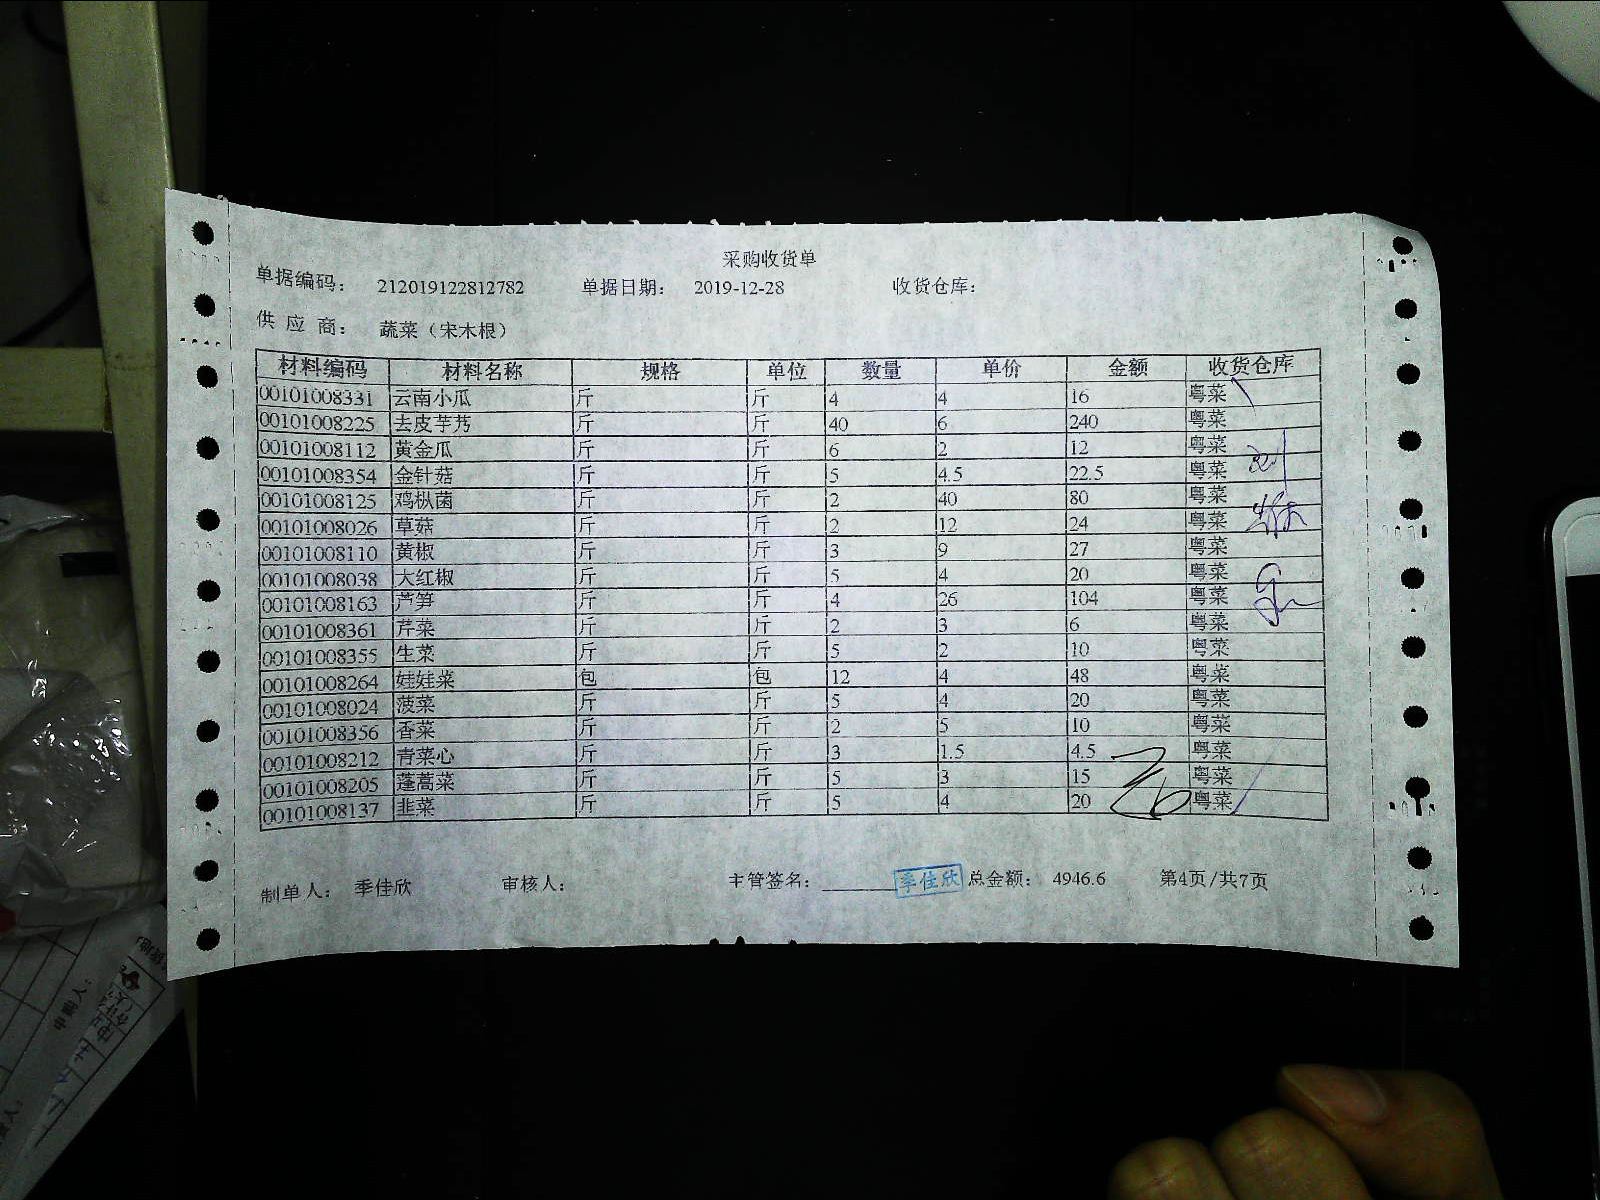 采购收货单
单据编码: 212019122812782 单据日期: 2019-12-28 收货仓库:
供应商: 蔬菜（宋木根）
材料编码 材料名称 规格 单位 数量 单价 金额 收货仓库
00101008331 云南小瓜 斤 斤 4 4 16 粤菜
00101008225 去皮芋艿 斤 斤 40 6 240 粤菜
00101008112 黄金瓜 斤 斤 6 2 12 粤菜
00101008354 金针菇 斤 斤 5 4.5 22.5 粤菜
00101008125 鸡枞菌 斤 斤 2 40 80 粤菜
00101008026 草菇 斤 斤 2 12 24 粤菜
00101008110 黄椒 斤 斤 3 9 27 粤菜
00101008038 大红椒 斤 斤 5 4 20 粤菜
00101008163 芦笋 斤 斤 4 26 104 粤菜
00101008361 芹菜 斤 斤 2 3 6 粤菜
00101008355 生菜 斤 斤 5 2 10 粤菜
00101008264 娃娃菜 包 包 12 4 48 粤菜
00101008024 菠菜 斤 斤 5 4 20 粤菜
00101008356 香菜 斤 斤 2 5 10 粤菜
00101008212 青菜心 斤 斤 3 1.5 4.5 粤菜
00101008205 蓬蒿菜 斤 斤 5 3 15 粤菜
00101008137 韭菜 斤 斤 5 4 20 粤菜
制单人: 季佳欣 审核人: 主管签名: 季佳欣 总金额: 4946.6 第4页/共7页
申购人: